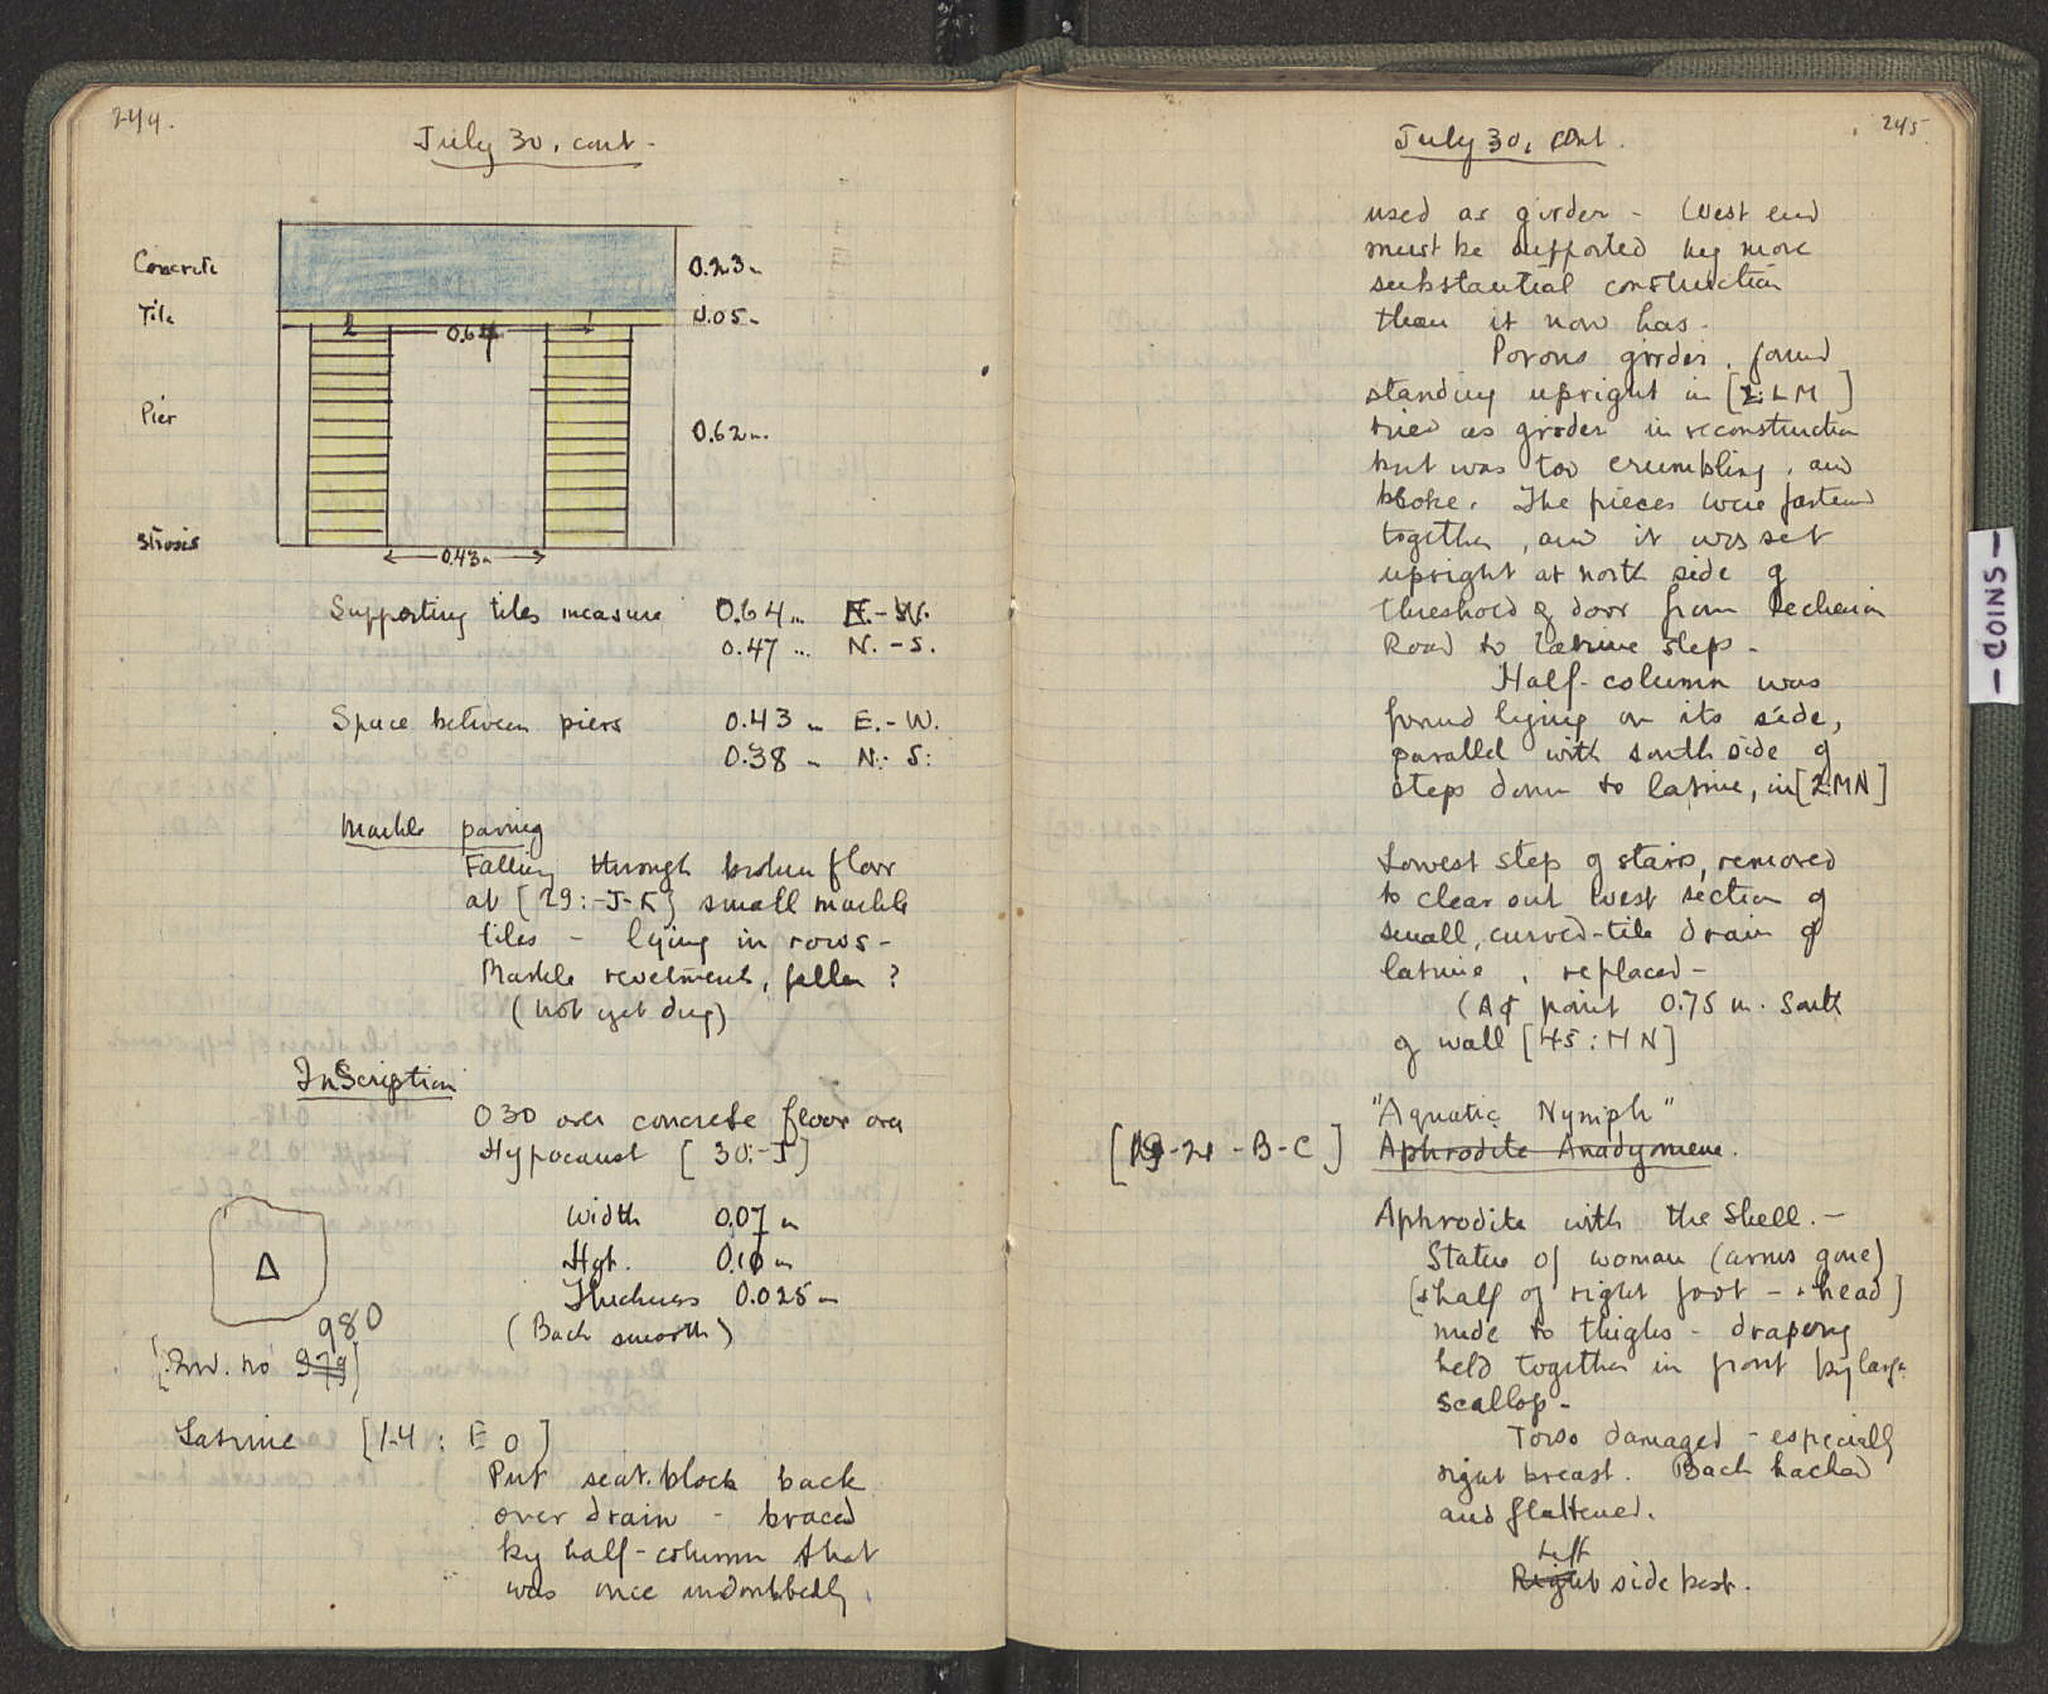 244.
July 30, cont.
Concrete 0.23m
Tile 0.05m
0.64
Pier 0.62m.
Strosis
0.43m
Supporting tiles measure 0.64m E.-W.
0.47m N.-S.
Space between piers 0.43m E.-W.
0.38m N.-S.
Marble paving
Falling through broken floor
at [29:-J-K] small marble
tiles - lying in rows -
Marble revetment, fallen?
(not yet dug)
Inscription
030 over concrete floor over
Hypocaust [30:-J]
Width 0.07m
Hgt. 0.10m
Thickness 0.025m
(Back smooth)
Δ
980
[Inv. no 979]
Latrine [1-4: E O]
Put seat-block back
over drain - braced
by half-column that
was once undoubtedly
245
July 30, cont.
used as girder - West end
must be supported by more
substantial construction
than it now has.
Porous girder, found
standing upright in [2:LM]
tried as girder in reconstruction
but was too crumbling, and
broke. The pieces were fastened
together, and it was set
upright at north side of
threshold of door from Lechaion
Road to latrine steps -
Half-column was
found lying on its side,
parallel with south side of
steps down to latrine, in [2:MN]
Lowest step of stairs, removed
to clear out West section of
small, curved-tile drain of
latrine, replaced -
(At point 0.75 m. South
of wall [45:MN]
"Aquatic Nymph"
[19-21-B-C] Aphrodite Anadyomene.
Aphrodite with the Shell. -
Statue of woman (arms gone)
[+ half of right foot - + head]
nude to thighs - drapery
held together in front by large
scallop -
Torso damaged - especially
right breast. Back hacked
and flattened.
Left
Right side best.
- COINS -